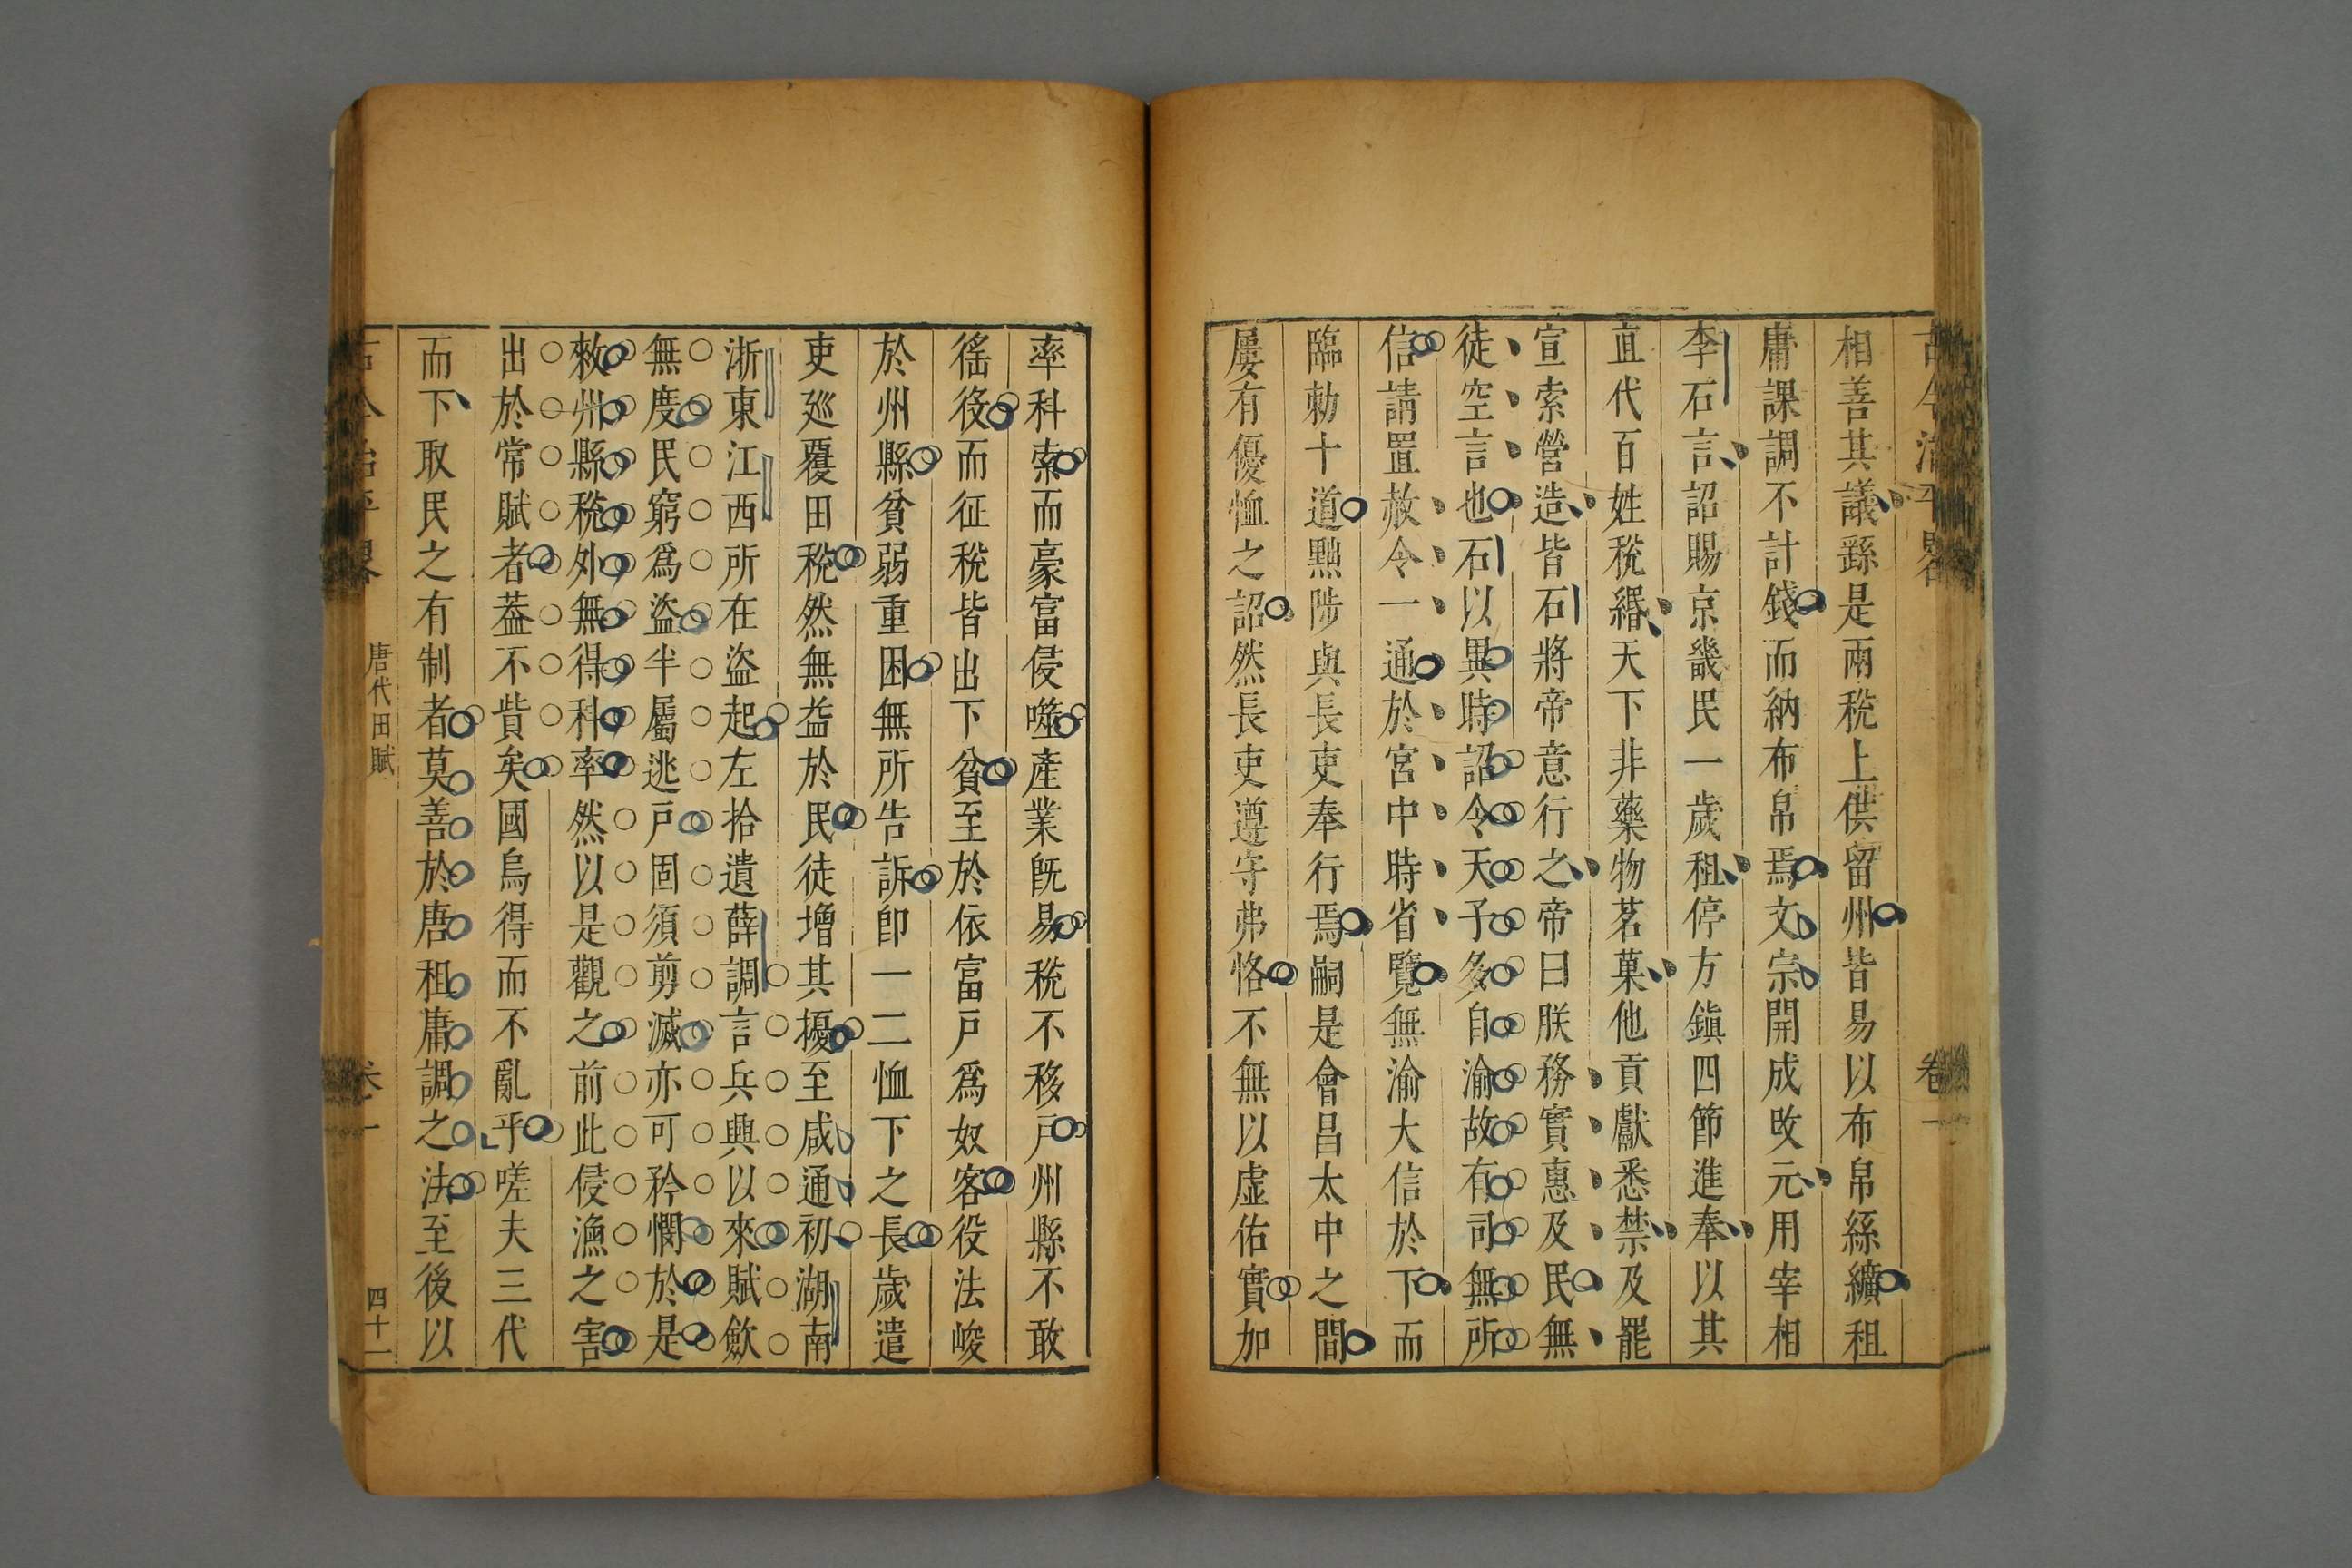 古今治平畧 卷一
相善其議繇是兩稅上供留州皆易以布帛絲纊租
庸課調不計錢而納布帛焉文宗開成改元用宰相
李石言詔賜京畿民一歲租停方鎮四節進奉以其
直代百姓稅緡天下非藥物茗菓他貢獻悉禁及罷
宣索營造皆石將帝意行之帝曰朕務實惠及民無
徒空言也石以異時詔令天子多自渝故有司無所
信請置赦令一通於宮中時省覽無渝大信於下而
臨勅十道黜陟與長吏奉行焉嗣是會昌太中之間
屢有優恤之詔然長吏遵守弗恪不無以虛佑實加
率科索而豪富侵噬產業旣易稅不移戶州縣不敢
徭役而征稅皆出下貧至於依富戶爲奴客役法峻
於州縣貧弱重困無所告訴卽一二恤下之長歲遣
吏廵覆田稅然無益於民徒增其擾至咸通初湖南
浙東江西所在盜起左拾遺薛調言兵興以來賦歛
無度民窮爲盜半屬逃戶固須剪滅亦可矜憫於是
敕州縣稅外無得科率然以是觀之前此侵漁之害
出於常賦者葢不貲矣國烏得而不亂乎嗟夫三代
而下取民之有制者莫善於唐租庸調之法至後以
古今治平畧 唐代田賦 卷一 四十一